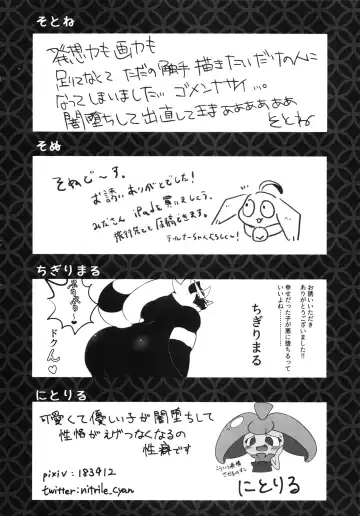 そとね
発想力も画力も
足りなくて ただの触手描きたいだけの人に
なってしまいました… ゴメンナサイ…。
闇堕ちして出直して来まぁぁぁぁぁぁ
そとね
そぬ
そぬじ〜す。
お誘いありがとでした!
みなさん iPadを買いましょう。
旅行先でも原稿できます。
ちぎりまる
お誘いいただき
ありがとうございました!!
幸せだった子が悪に堕ちるって
いいよね………
ちぎりまる
ドクん♡
にとりる
可愛くて優しい子が闇堕ちして
性格がえげつなくなるの
性癖です
pixiv:183412
twitter:nitrile_cyan
にとりる